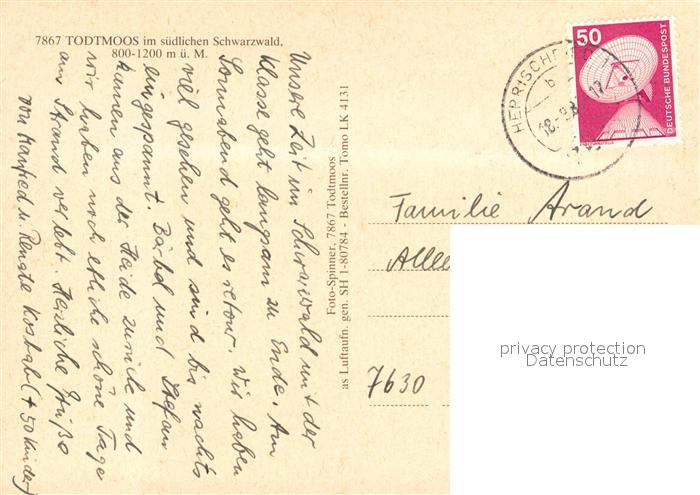 7867 TODTMOOS im südlichen Schwarzwald,
800-1200 m ü. M.
Unsere Zeit im Schwarzwald mit der
Klasse geht langsam zu Ende. Am
Sonnabend geht es retour. Wir haben
viel gesehen und sind bis nachts
eingespannt. Bärbel und Stefan
kamen aus der Heide zurück und
wir haben noch etliche schöne Tage
am Strand verlebt. Herzliche Grüße
von Manfred u. Renate (+ 50 Kinder)
Foto-Spinner, 7867 Todtmoos
as Luftaufn. gen. SH 1-80784 - Bestellnr. Tomo LK 4131
50
DEUTSCHE BUNDESPOST
HERRISCHRIED
b
Familie Arand
Allee
7630
privacy protection
Datenschutz